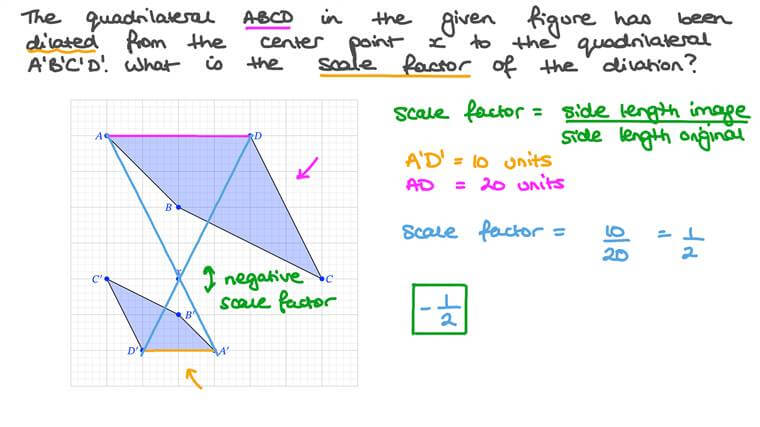 The quadrilateral ABCD in the given figure has been
dilated from the center point x to the quadrilateral
A'B'C'D'. What is the scale factor of the dilation?
A
D
B
C
x
C'
B'
D'
A'
negative
scale factor
scale factor = side length image
side length original
A'D' = 10 units
AD = 20 units
scale factor = 10/20 = 1/2
-1/2